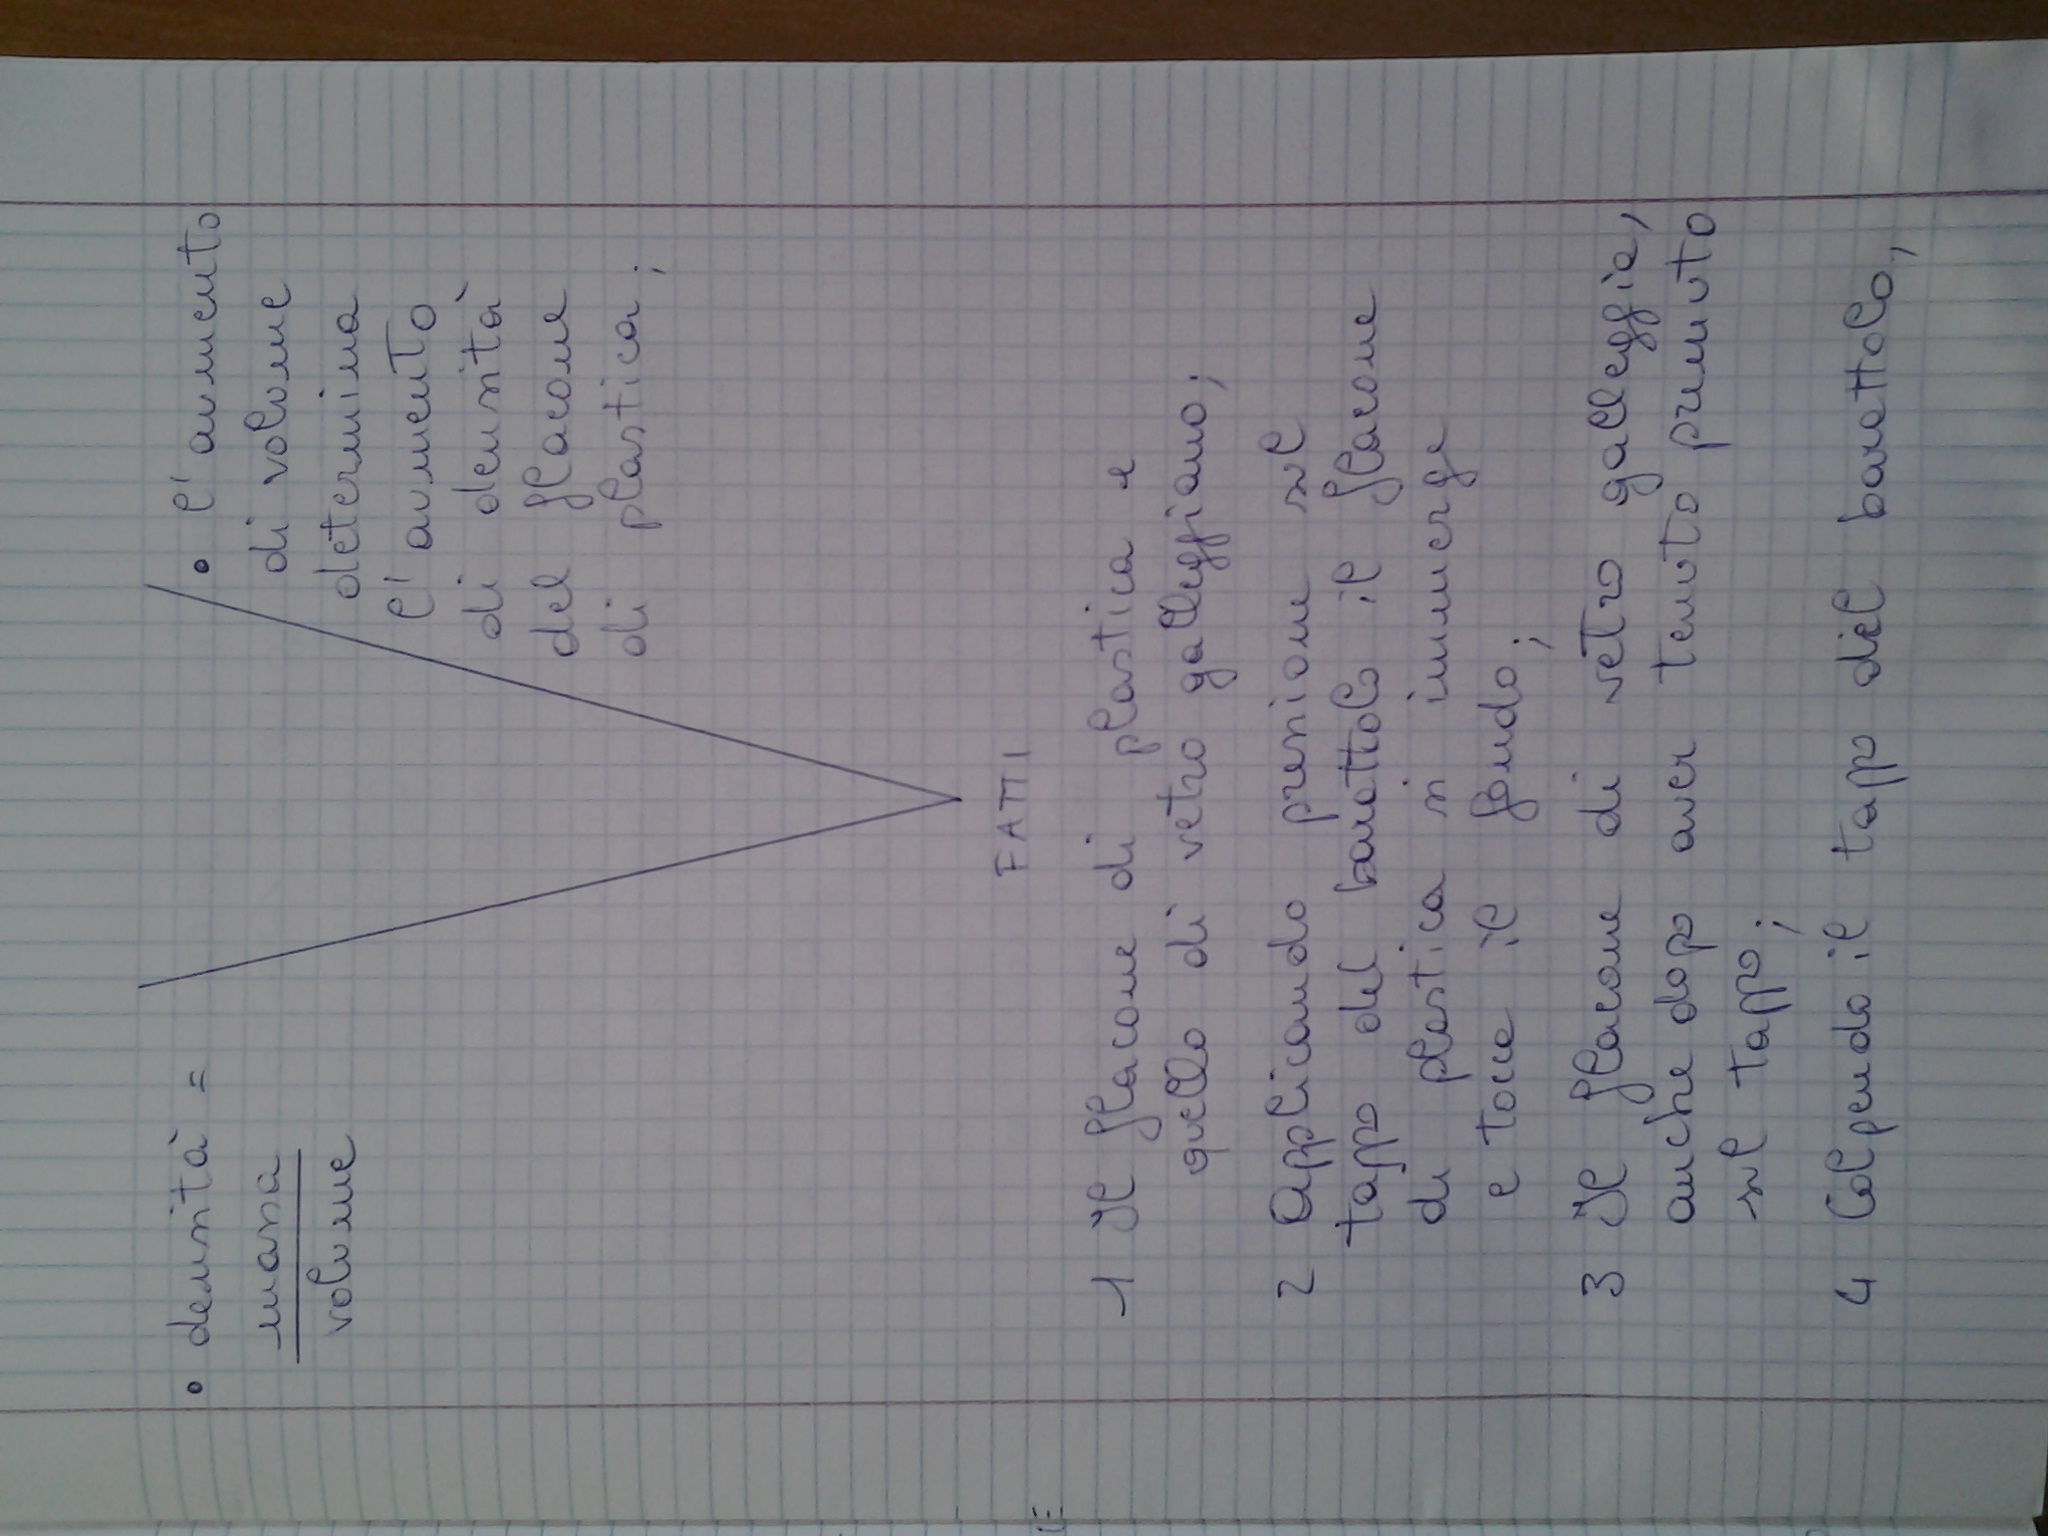 • densità =
massa
volume
• l'aumento
di volume
determina
l'aumento
di densità
del flacone
di plastica;
FATTI
1 Il flacone di plastica e
quello di vetro galleggiano;
2 Applicando pressione sul
tappo del barattolo il flacone
di plastica si immerge
e tocca il fondo;
3 Il flacone di vetro galleggia,
anche dopo aver tenuto premuto
sul tappo;
4 Colpendo il tappo del barattolo,